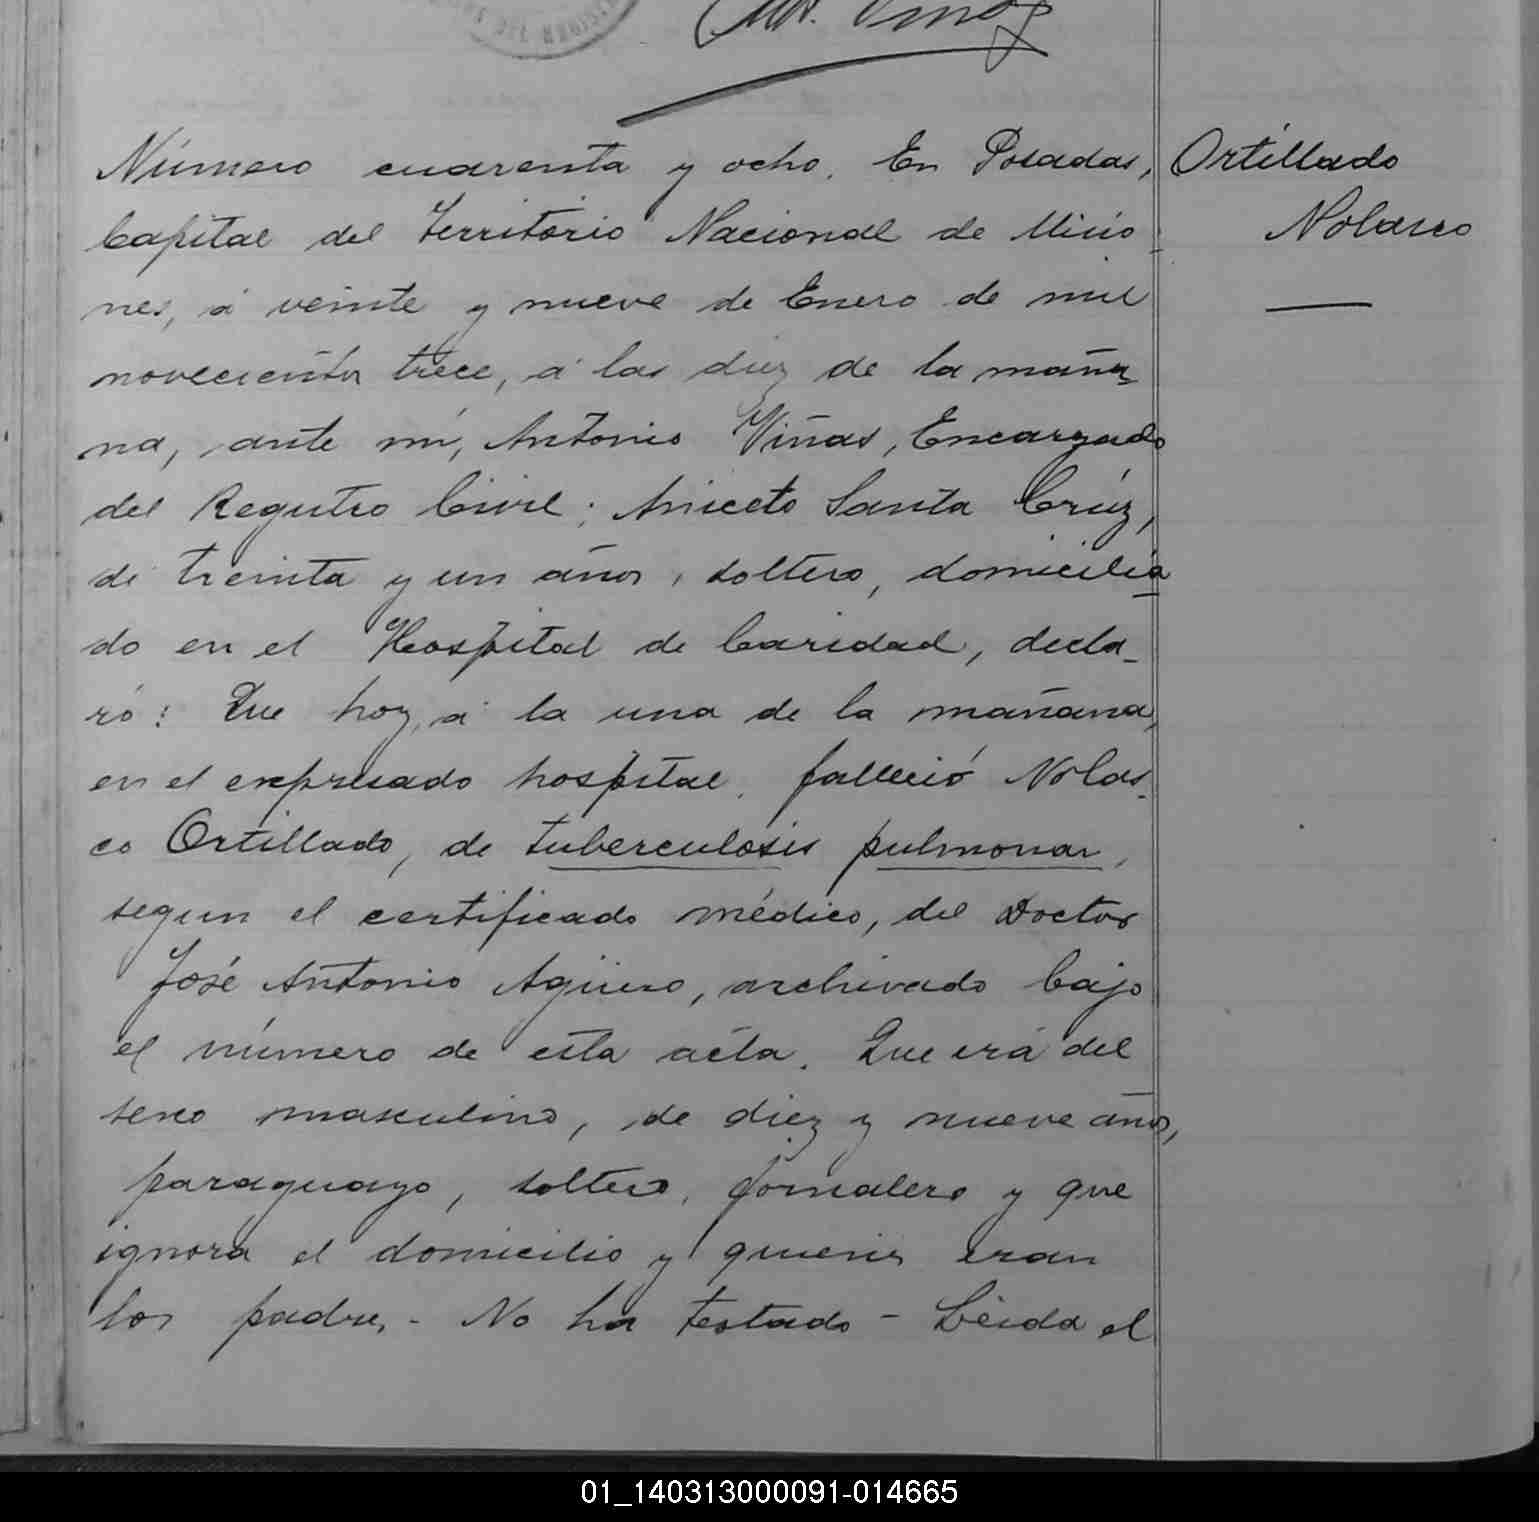 Viñas
Número cuarenta y ocho. En Posadas,
Capital del Territorio Nacional de Misio
nes, á veinte y nueve de Enero de mil
novecientos trece, á las diez de la maña
na, ante mí, Antonio Viñas, Encargado
del Registro Civil; Aniceto Santa Crúz,
de treinta y un años, soltero, domicilia
do en el Hospital de Caridad, decla-
ró: Que hoy, á la una de la mañana,
en el expresado hospital, falleció Nolas-
co Ortillado, de tuberculosis pulmonar,
segun el certificado médico, del Doctor
José Antonio Agüero, archivado bajo
el número de esta acta. Que era del
sexo masculino, de diez y nueve años,
paraguayo, soltero, jornalero y que
ignora el domicilio y quienes eran
los padres.- No ha testado - Leida el
Ortillado
Nolasco
01_140313000091-014665